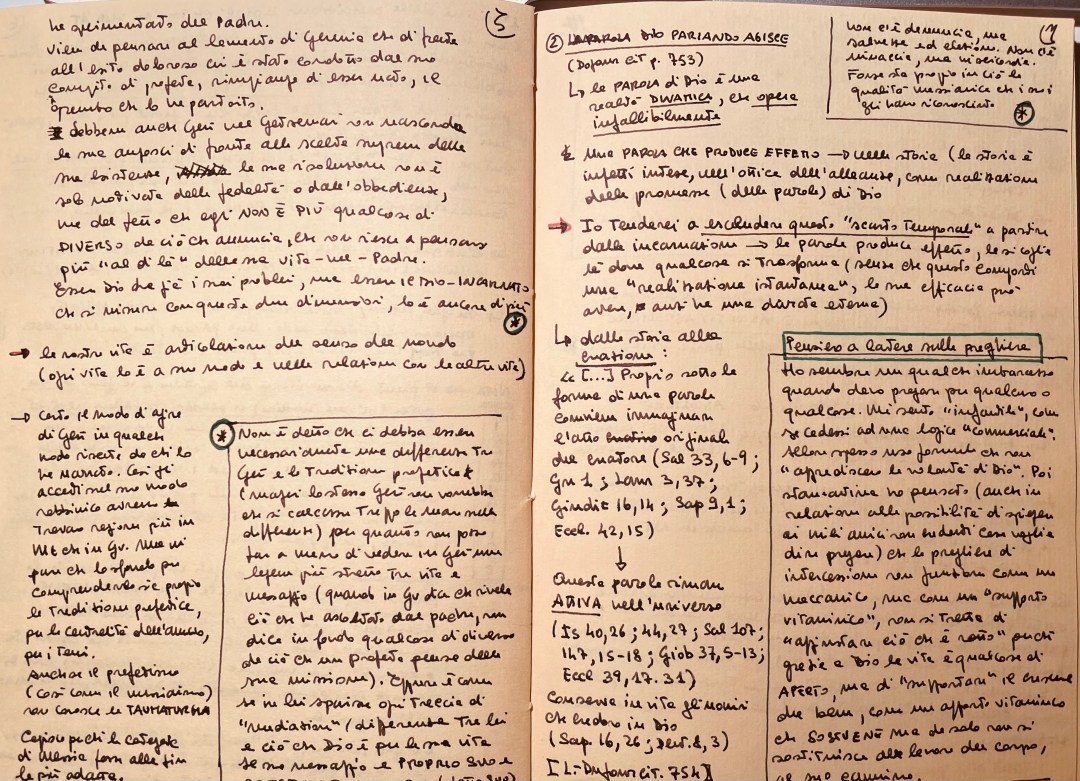 ha sperimentato del Padre.
Viene da pensare al lamento di Geremia che di fronte
all'esito doloroso cui è stato condotto dal suo
compito di profeta, rimpiange di esser nato, il
grembo che lo ha partorito.
debbene anche Gesù nel Getsemani non nasconda
la sua angoscia di fronte alle scelte supreme della
sua esistenza, la sua risoluzione non è
solo motivata dalla fedeltà o dall'obbedienza,
ma dal fatto che egli NON È PIÙ qualcosa di
DIVERSO da ciò che annuncia, che non riesce a pensarsi
più "al di là" della sua vita-nel-Padre.
Esser Dio ha già i suoi problemi, ma essere il DIO-INCARNATO
che si misura con queste due dimensioni, lo è ancora di più
*
→ la nostra vita è articolazione del senso del mondo
(ogni vita lo è a suo modo e nelle relazioni con le altre vite)
→ Certo il modo d'agire
di Gesù in qualche
modo risente di chi lo
ha narrato. Così gli
accenti sul suo modo
rabbinico avremo
trovano ragione più in
Mt che in Gv. Ma mi
pare che lo sfondo per
comprenderlo sia proprio
la Tradizione profetica,
per la centralità dell'annuncio,
per i temi.
Anche se il profetismo
(così come il messianismo)
non conosce la TAUMATURGIA
Capisco perché la categoria
di Messia forse alla fin
la più adatta.
* Non è detto che ci debba essere
necessariamente una differenza tra
Gesù e la Tradizione profetica
(magari lo stesso Gesù non vorrebbe
che si calcasse troppo la mano sulle
differenze) per quanto non posso
fare a meno di vedere in Gesù un
legame più stretto tra vita e
messaggio (quando in Gv dice che rivela
ciò che ha ascoltato dal padre, non
dice in fondo qualcosa di diverso
da ciò che un profeta pensa della
sua missione). Eppure è come
se in lui sparisse ogni traccia di
"mediazione" (differenza tra lui
e ciò che Dio è per la sua vita
se suo messaggio è PROPRIO SUO e
3
1
② LA PAROLA DIO PARLANDO AGISCE
(Dufour cit p. 753)
↳ la PAROLA di Dio è una
realtà DINAMICA, che opera
infallibilmente
non c'è denuncia, ma
salvezza ed elezione. Non c'è
minaccia, ma misericordia.
Forse sta proprio in ciò la
qualità messianica che i suoi
gli hanno riconosciuto
*
* Una PAROLA CHE PRODUCE EFFETTO → nella storia (la storia è
infatti intesa, nell'ottica dell'alleanza, come realizzazione
delle promesse (della parola) di Dio
→ Io Tenderei a escludere questo "scarto temporale" a partire
dalla incarnazione → la parola produce effetto, la si coglie
là dove qualcosa si trasforma (senza che questo comporti
una "realizzazione istantanea", la sua efficacia può
avere, anche una durata eterna)
↳ dalla storia alla
creazione:
« [...] Proprio sotto la
forma di una parola
conviene immaginare
l'atto originale
del creatore (Sal 33, 6-9;
Gn 1; Lam 3, 37;
Giudit 16, 14; Sap 9, 1;
Eccl. 42, 15)
↓
Questa parola rimane
ATTIVA nell'universo
(Is 40, 26; 44, 27; Sal 107;
147, 15-18; Giob 37, 5-13;
Eccl 39, 17. 31)
Conserva in vita gli uomini
che credono in Dio
(Sap. 16, 26; Deut. 8, 3)
[L-Dufour cit. 754]
Pensiero a latere sulla preghiera
Ho sempre un qualche imbarazzo
quando devo pregare per qualcuno o
qualcosa. Mi sento "infantile", come
se cedessi ad una logica "commerciale".
Allora spesso uso formule che non
"aggrediscano la volontà di Dio". Poi
stamattina ho pensato (anche in
relazione alla possibilità di spiegare
ai miei amici non credenti cosa voglia
dire pregare) che la preghiera di
intercessione non funziona come un
meccanico, ma come un "supporto
vitaminico", non si tratta di
"aggiustare ciò che è rotto" perché
grazie a Dio la vita è qualcosa di
APERTO, ma di "supportare" il crescere
del bene, come un apporto vitaminico
che SOVVIENE ma da solo non si
sostituisce al lavoro del corpo,
al suo cammino.